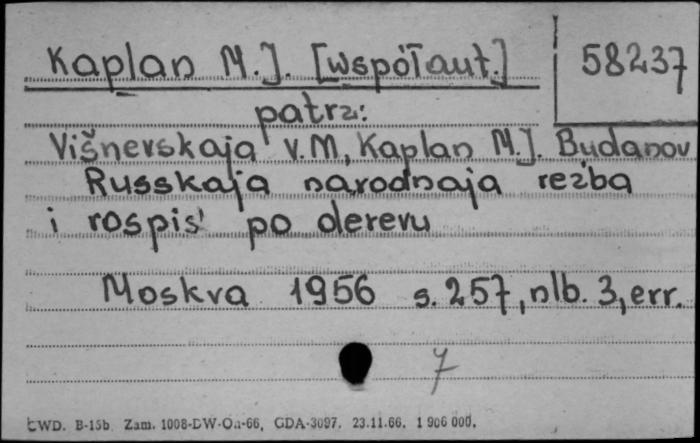 Kaplan M.J. [współaut.] 58237
patrz:
Višnevskaja V.M, Kaplan M.J. Budanov
Russkaja narodnaja rezba
i rospis' po derevu
Moskva 1956 s. 257, nlb. 3, err.
7
CWD. B-15b Zam. 1008-DW-On-66, GDA-3097. 23.11.66. 1 906 000.